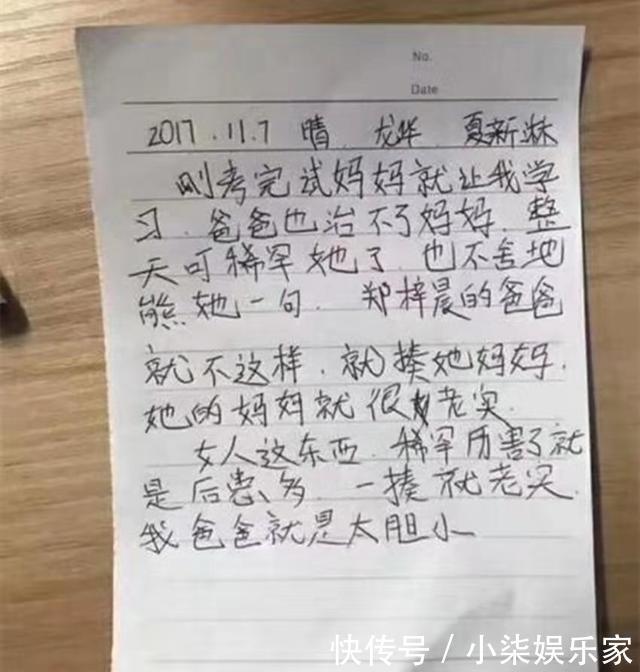 No.
Date
2017.11.7 晴 龙华 夏新淋
刚考完试妈妈就让我学
习.爸爸也治不了妈妈.整
天可稀罕她了.也不舍地
熊她一句. 郑梓晨的爸爸
就不这样.就揍她妈妈.
她的妈妈就很老实.
女人这东西.稀罕历害了就
是后患多.一揍就老实.
我爸爸就是太胆小
快传号/小柒娱乐家